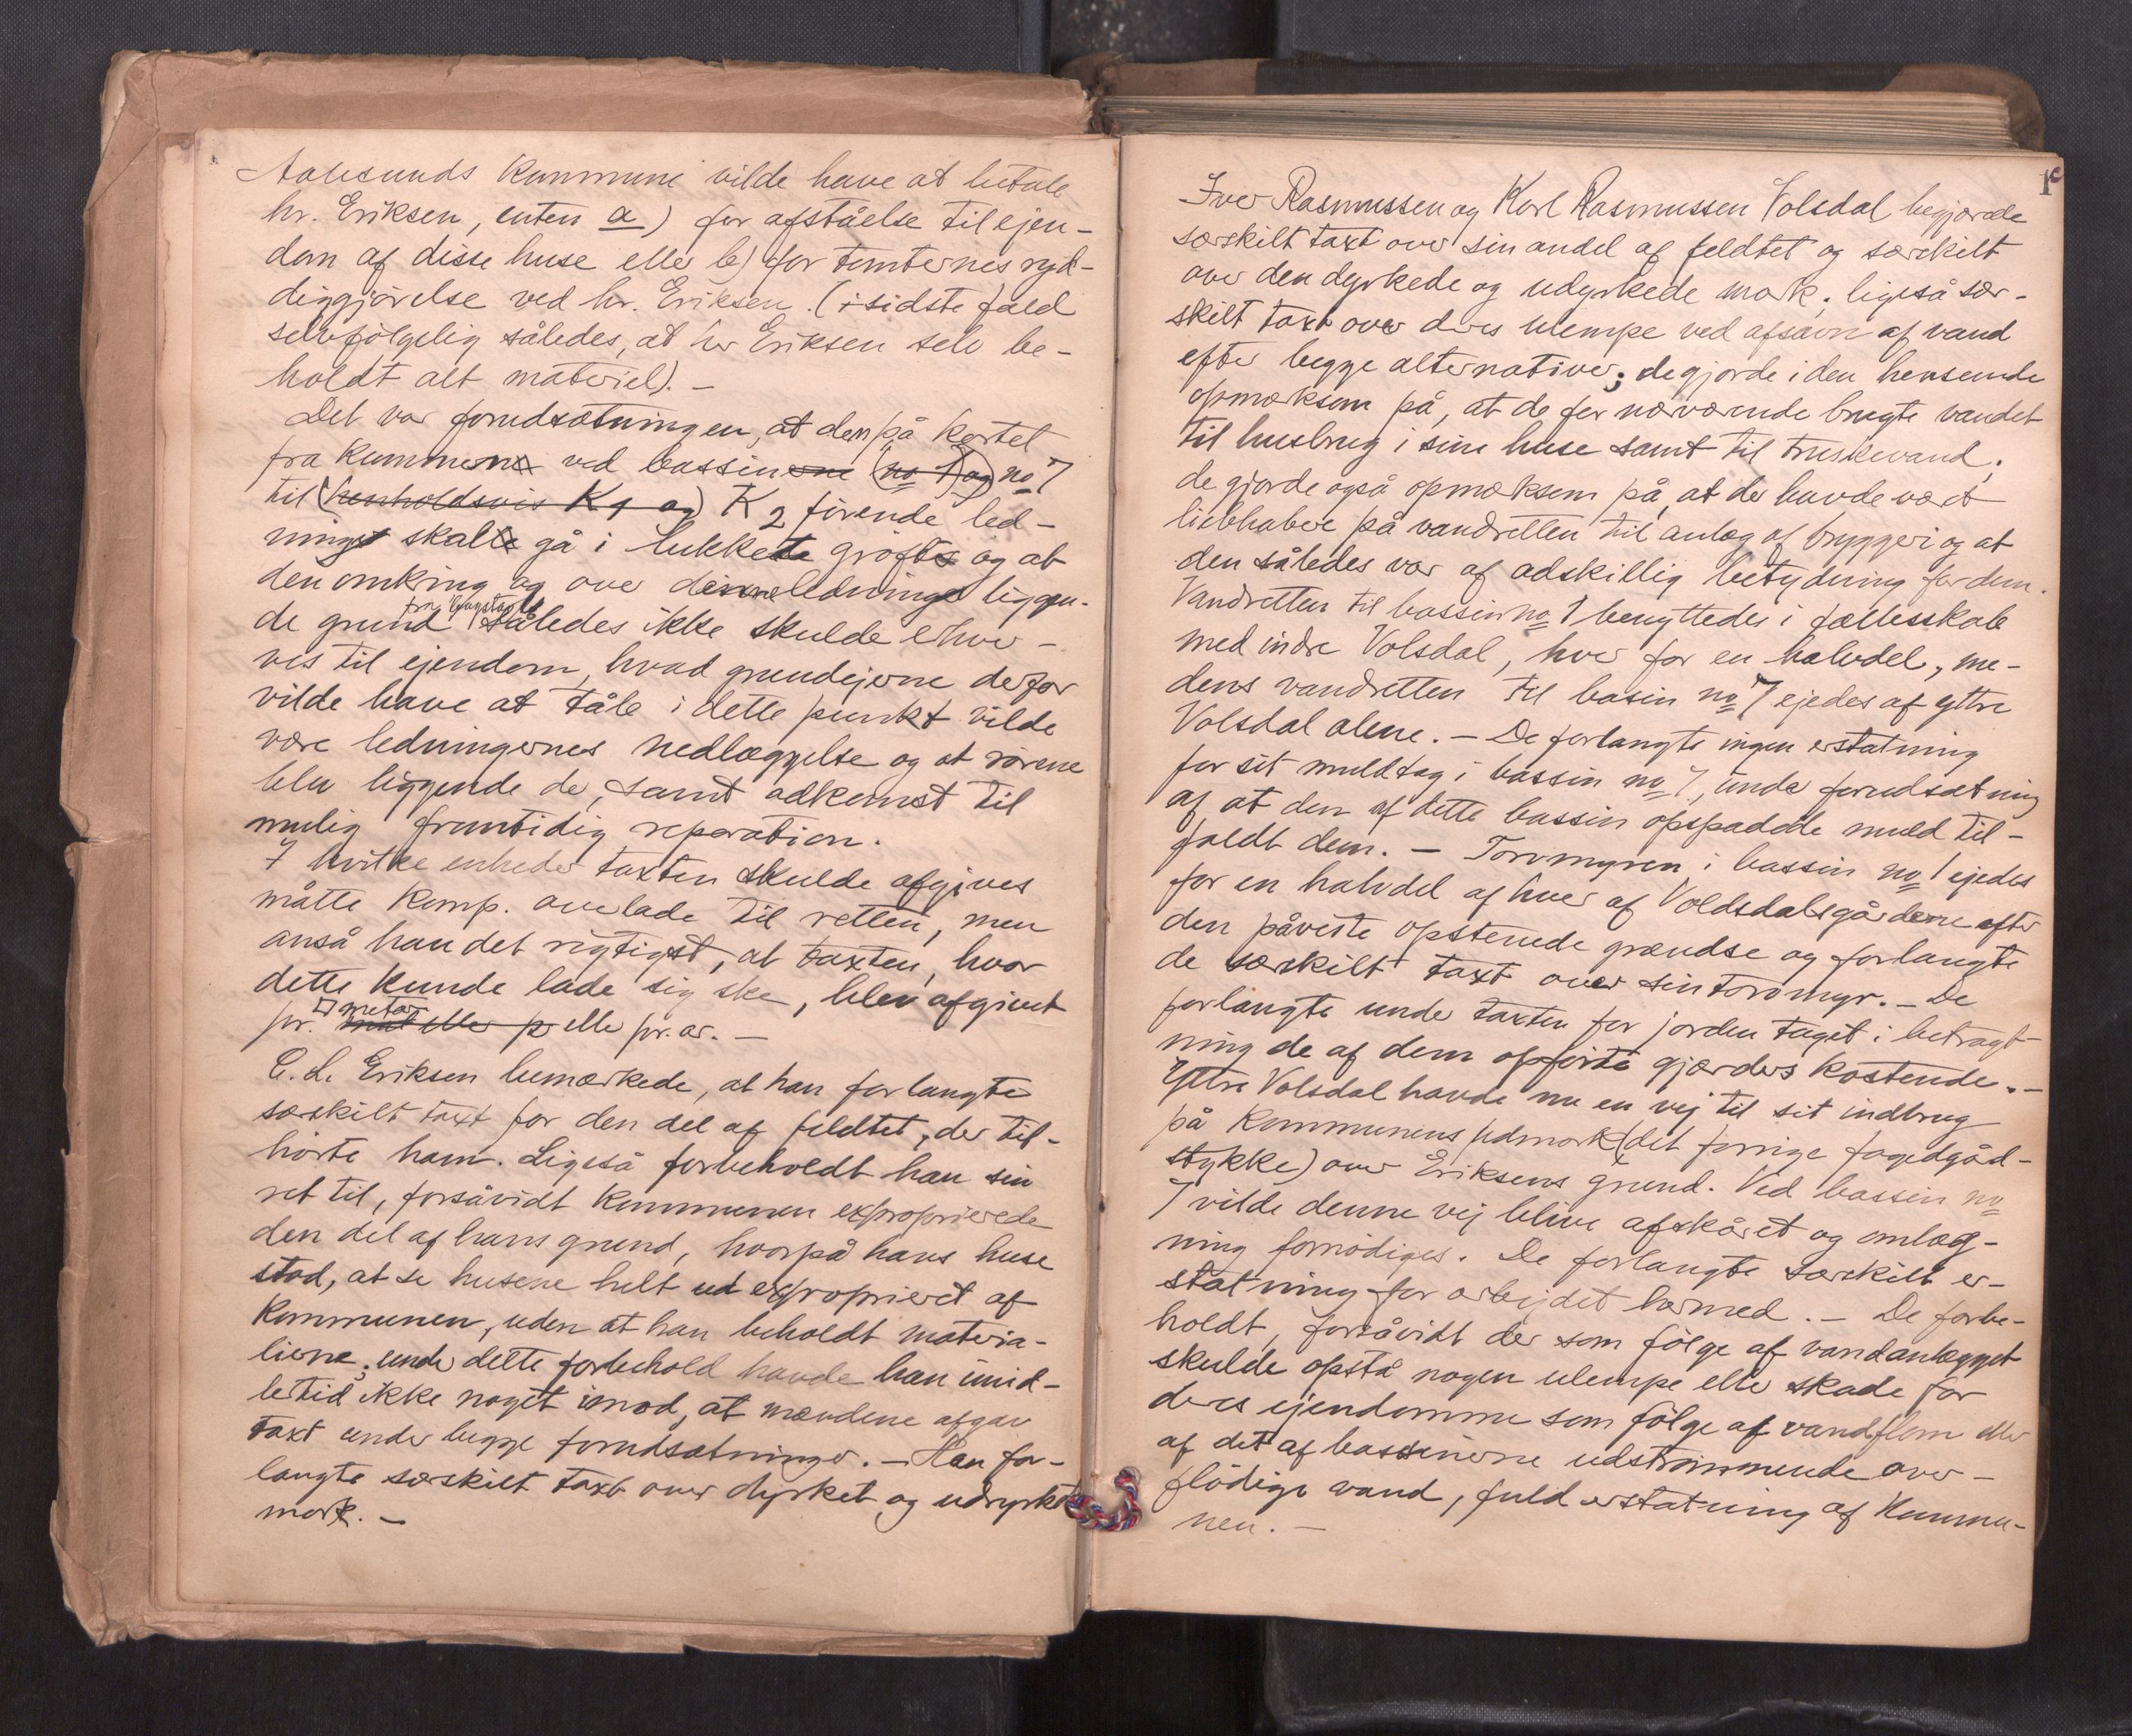 Aalesunds kommune vilde have at betale
hr. Eriksen, enten a) for afståelse til ejen-
dom af disse huse eller b) for tomternes ryd-
diggjörelse ved hr. Eriksen. (i sidste fald
selvfölgelig således, at hr Eriksen selv be-
holdt alt materiel). —
Det var forudsætningen, at den på kartet
fra kummene ved bassinerne (no 1 og) no 7
til (henholdsvis K1 og) K2 förende led-
ninger skalle gå i lukkede gröfter og at
den omkring og over denne ledninge liggen-
de grund således ikke skulde erhver-
ves til ejendom, hvad grundejerne derfor
vilde have at tåle i dette punkt vilde
være ledningernes nedlæggelse og at rörene
blev liggende der, samt adkomst til
mulig fremtidig reparation.
I hvilke enheder taxten skulde afgives
måtte komp. overlade til retten, men
anså han det rigtigst, at taxten, hvor
dette kunde lade sig ske, blev afgivet
pr. □ meter mål eller p eller pr. ar. —
C. L. Eriksen bemærkede, at han forlangte
særskilt taxt for den del af feldtet, der til-
hörte ham. Ligeså forbeholdt han sin
ret til, forsåvidt kommunen exproprierede
den del af hans grund, hvorpå hans huse
stod, at se husene helt ud exproprieret af
kommunen, uden at han beholdt materia-
lierne; under dette forbehold havde han imid-
lertid ikke noget imod, at mændene afgav
taxt under begge forudsætninger. — Han for-
langte særskilt taxt over dyrket og udyrket
mark. —
Iver Rasmussen og Karl Rasmussen Volsdal begjærede
særskilt taxt over sin andel af feldtet og særskilt
over den dyrkede og udyrkede mark; ligeså sær-
skilt taxt over deres ulempe ved afsavn af vand
efter begge alternativer; de gjorde i den henseende
opmærksom på, at de for nærværende brugte vandet
til husbrug i sine huse samt til truskevand;
de gjorde også opmærksom på, at der havde været
liebhabere på vandretten til anlæg af bryggeri og at
den således var af adskillig betydning for dem.
Vandretten til bassin no 1 benyttedes i fællesskab
med indre Volsdal, hver for en halvdel, me-
dens vandretten til basin no 7 ejedes af yttre
Volsdal alene. — De forlangte ingen erstatning
for sit muldtag i bassin no 7, under forudsætning
af at den af dette bassin opspadede muld til-
faldt dem. — Torvmyren i bassin no 1 ejedes
for en halvdel af hver af Voldsdalsgårdene efter
den påviste opstenede grændse og forlangte
de særskilt taxt over sin torvmyr. — De
forlangte under taxten for jorden taget i betragt-
ning de af dem opförte gjærders kostende. —
Yttre Volsdal havde nu en vej til sit indbrug
på kommunens udmark (det forrige fogedgård-
stykke) over Eriksens grund. Ved bassin no
7 vilde denne vej blive afskåret og omlæg-
ning fornödiges. De forlangte særskilt er-
statning for arbejdet hermed. — De forbe-
holdt, forsåvidt der som fölge af vandanlægget
skulde opstå nogen ulempe eller skade for
deres ejendomme som fölge af vandflom eller
af det af bassinerne udströmmende over-
flödige vand, fuld erstatning af kommu-
nen. —